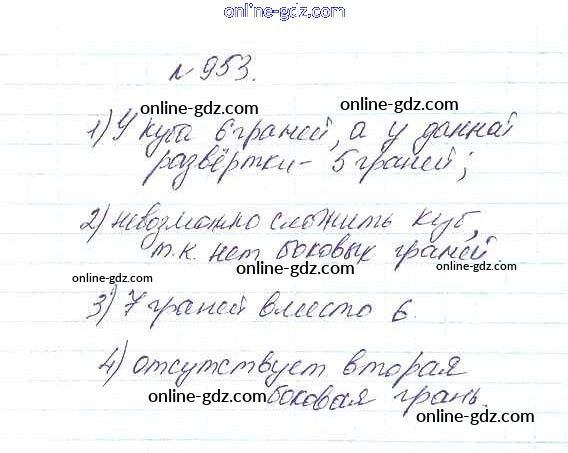 online-gdz.com
№ 953.
online-gdz.com
1) У куба 6 граней, а у данной
online-gdz.com online-gdz.com
развёртки - 5 граней;
2) невозможно сложить куб,
online-gdz.com
т.к. нет боковых граней.
online-gdz.com online-gdz.com online-gdz.com
3) 7 граней вместо 6.
4) отсутствует вторая
боковая грань.
online-gdz.com online-gdz.com
online-gdz.com